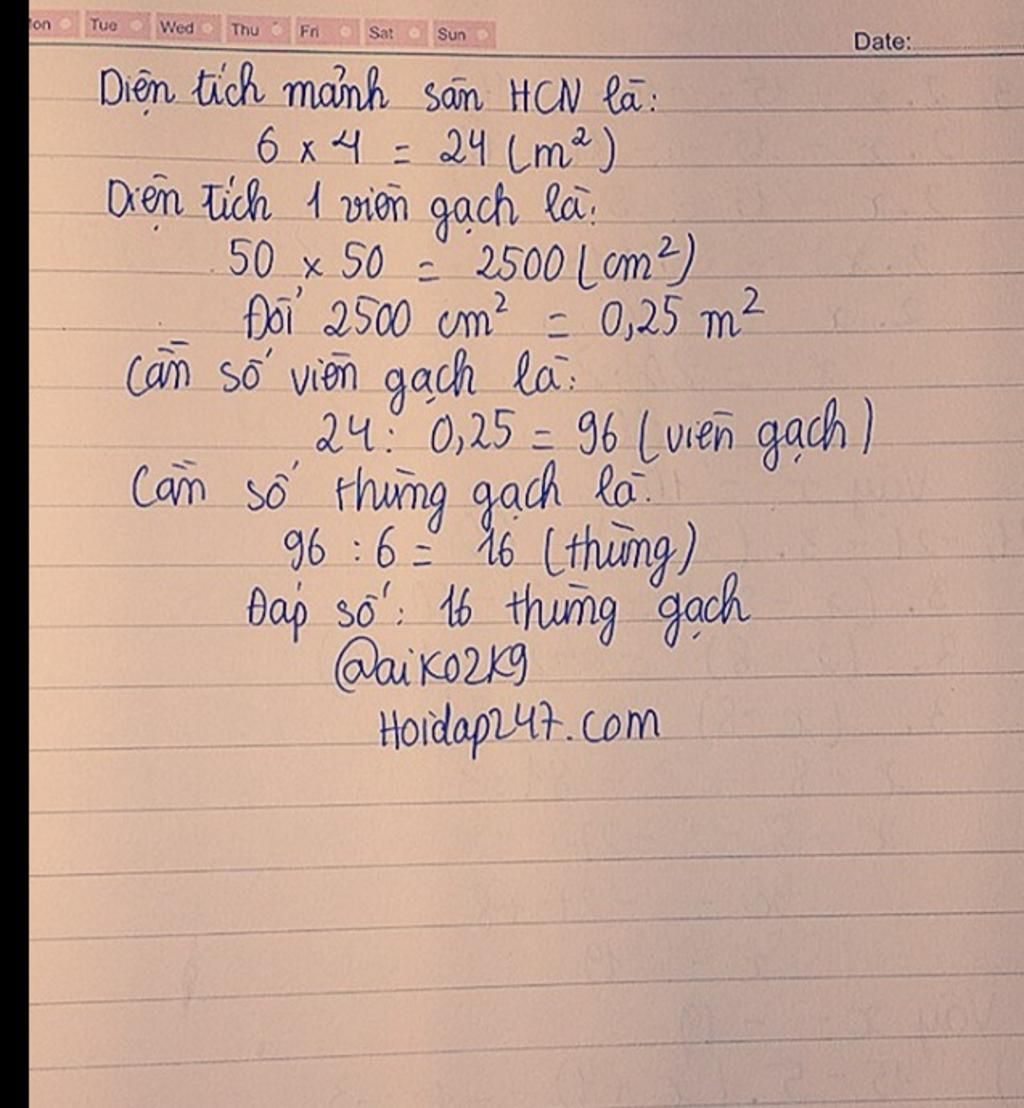 on Tue Wed Thu Fri Sat Sun
Date:
Diện tích mảnh sân HCN là:
6 x 4 = 24 (m²)
Diện tích 1 viên gạch là:
50 x 50 = 2500 (cm²)
Đổi 2500 cm² = 0,25 m²
Cần số viên gạch là:
24 : 0,25 = 96 (viên gạch)
Cần số thùng gạch là:
96 : 6 = 16 (thùng)
Đáp số: 16 thùng gạch
@aiko2k9
Hoidap247.com